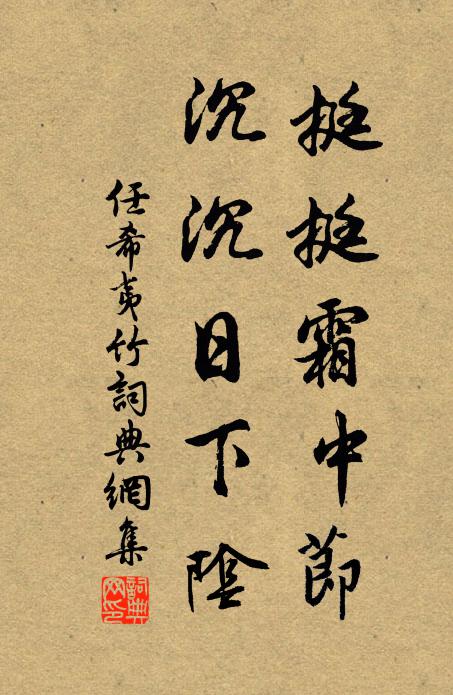 挺挺霜中節
沉沉日下陰
任希夷竹詞典網集
詞典网印